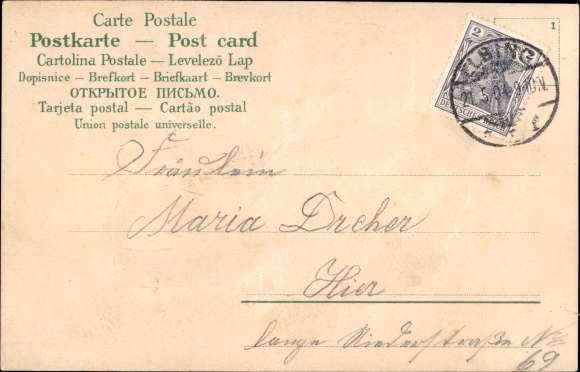 Carte Postale
Postkarte — Post card
Cartolina Postale — Levelező Lap
Dopisnice — Brefkort — Briefkaart — Brevkort
ОТКРЫТОЕ ПИСЬМО.
Tarjeta postal — Cartão postal
Union postale universelle.
1
2
ELBING
Fräulein
Maria Dreher
Hier
lange Niederstraße No
69